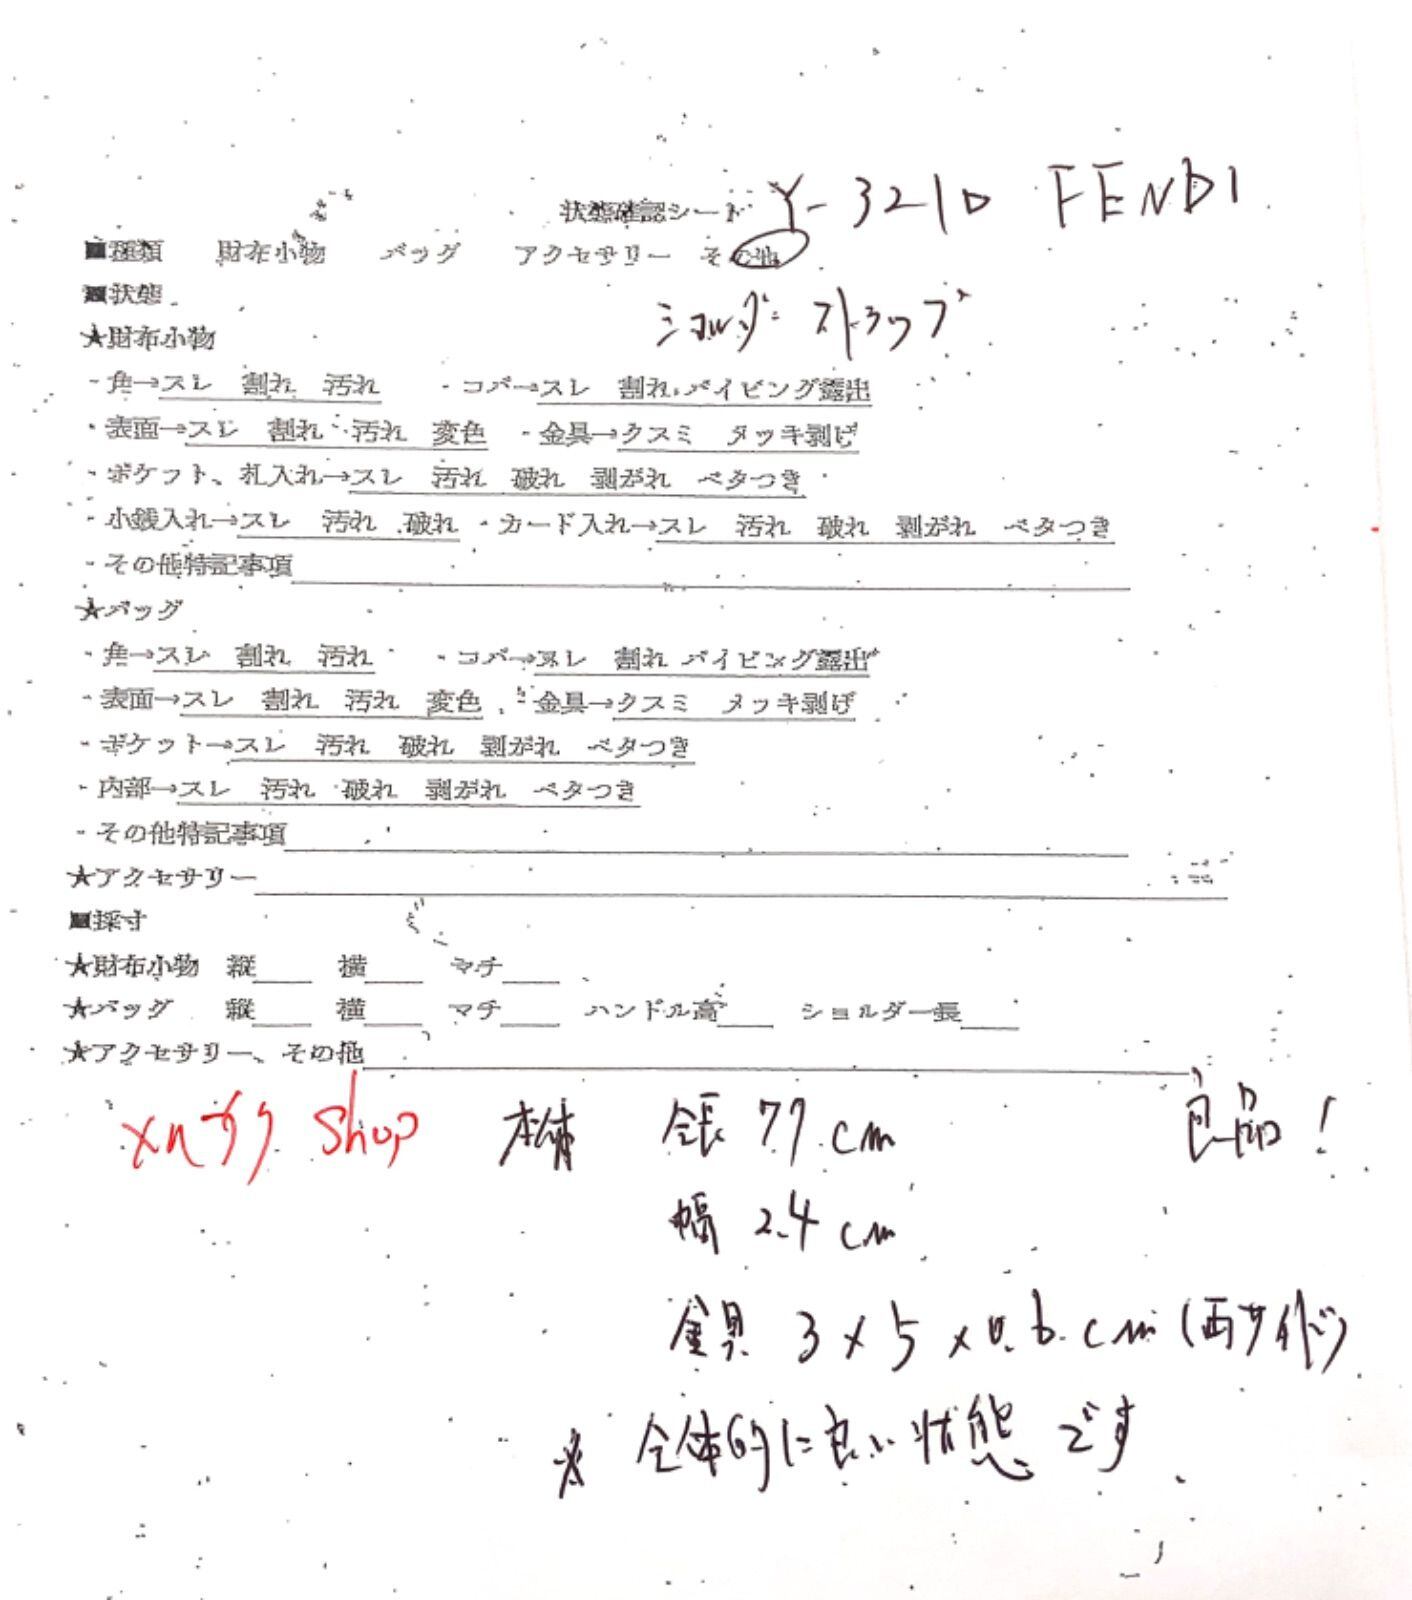 状態確認シート Y-3210 FENDI
■種類 財布小物 バッグ アクセサリー その他
■状態 ショルダーストラップ
★財布小物
・角→スレ 割れ 汚れ ・コバ→スレ 割れ パイピング露出
・表面→スレ 割れ 汚れ 変色 ・金具→クスミ メッキ剥げ
・ポケット、札入れ→スレ 汚れ 破れ 剥がれ ベタつき
・小銭入れ→スレ 汚れ 破れ ・カード入れ→スレ 汚れ 破れ 剥がれ ベタつき
・その他特記事項
★バッグ
・角→スレ 割れ 汚れ ・コバ→スレ 割れ パイピング露出
・表面→スレ 割れ 汚れ 変色 ・金具→クスミ メッキ剥げ
・ポケット→スレ 汚れ 破れ 剥がれ ベタつき
・内部→スレ 汚れ 破れ 剥がれ ベタつき
・その他特記事項
★アクセサリー
■採寸
★財布小物 縦 横 マチ
★バッグ 縦 横 マチ ハンドル高 ショルダー長
★アクセサリー、その他
Shop 本体 全長 77cm 良品!
幅 2.4cm
金具 3×5×0.6cm(両サイド)
※ 全体的に良い状態です